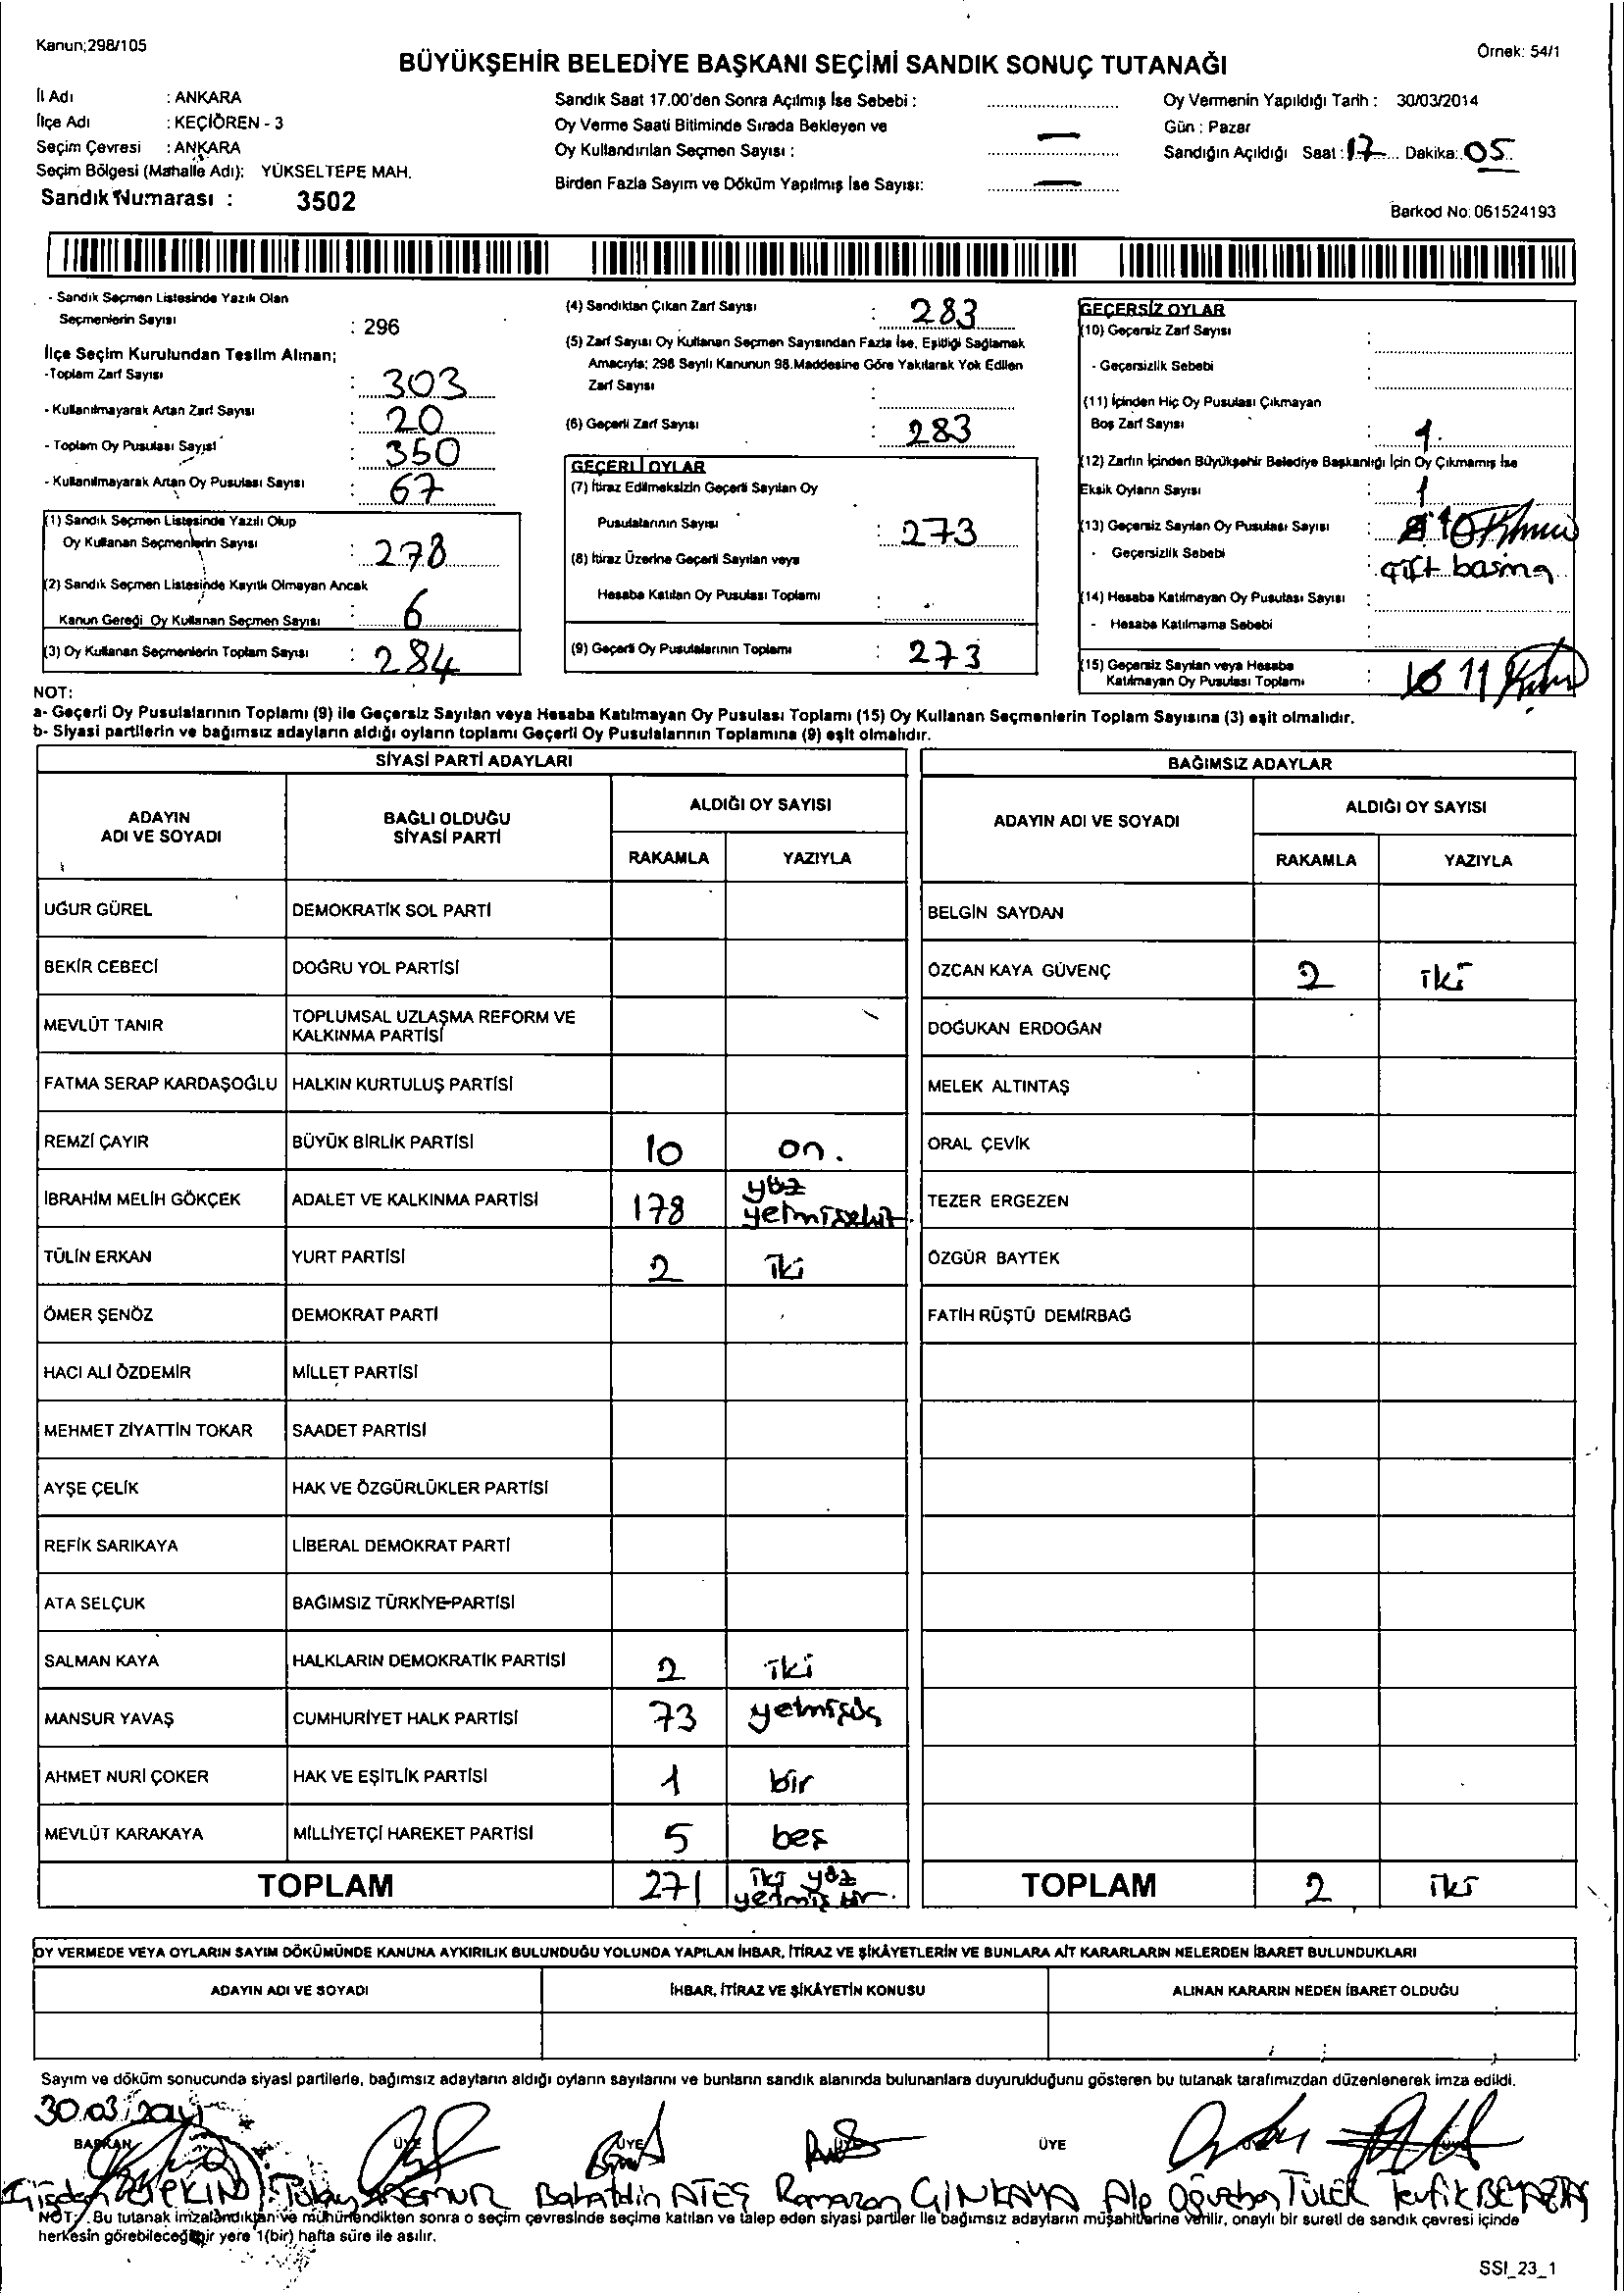 Kanun;298/105
Örnek: 54/1
BÜYÜKŞEHİR BELEDİYE BAŞKANI SEÇİMİ SANDIK SONUÇ TUTANAĞI
İl Adı : ANKARA
İlçe Adı : KEÇİÖREN - 3
Seçim Çevresi : ANKARA
Seçim Bölgesi (Mahalle Adı): YÜKSELTEPE MAH.
Sandık Numarası : 3502
Sandık Saat 17.00'den Sonra Açılmış İse Sebebi :
Oy Verme Saati Bitiminde Sırada Bekleyen ve
Oy Kullandırılan Seçmen Sayısı : —
Birden Fazla Sayım ve Döküm Yapılmış İse Sayısı: —
Oy Vermenin Yapıldığı Tarih : 30/03/2014
Gün : Pazar
Sandığın Açıldığı Saat : 17 Dakika: 05
Barkod No: 061524193
- Sandık Seçmen Listesinde Yazılı Olan
Seçmenlerin Sayısı : 296
İlçe Seçim Kurulundan Teslim Alınan;
-Toplam Zarf Sayısı : 303
- Kullanılmayarak Artan Zarf Sayısı : 20
- Toplam Oy Pusulası Sayısı : 350
- Kullanılmayarak Artan Oy Pusulası Sayısı : 67
(1) Sandık Seçmen Listesinde Yazılı Olup
Oy Kullanan Seçmenlerin Sayısı : 278
(2) Sandık Seçmen Listesinde Kayıtlı Olmayan Ancak
Kanun Gereği Oy Kullanan Seçmen Sayısı : 6
(3) Oy Kullanan Seçmenlerin Toplam Sayısı : 284
(4) Sandıktan Çıkan Zarf Sayısı : 283
(5) Zarf Sayısı Oy Kullanan Seçmen Sayısından Fazla İse, Eşitliği Sağlamak
Amacıyla; 298 Sayılı Kanunun 98.Maddesine Göre Yakılarak Yok Edilen
Zarf Sayısı :
(6) Geçerli Zarf Sayısı : 283
GEÇERLİ OYLAR
(7) İtiraz Edilmeksizin Geçerli Sayılan Oy
Pusulalarının Sayısı : 273
(8) İtiraz Üzerine Geçerli Sayılan veya
Hesaba Katılan Oy Pusulası Toplamı :
(9) Geçerli Oy Pusulalarının Toplamı : 273
GEÇERSİZ OYLAR
(10) Geçersiz Zarf Sayısı :
- Geçersizlik Sebebi :
(11) İçinden Hiç Oy Pusulası Çıkmayan
Boş Zarf Sayısı : 1
(12) Zarfın İçinden Büyükşehir Belediye Başkanlığı İçin Oy Çıkmamış İse
Eksik Oyların Sayısı : 1
(13) Geçersiz Sayılan Oy Pusulası Sayısı : 10
- Geçersizlik Sebebi : çift basma
(14) Hesaba Katılmayan Oy Pusulası Sayısı :
- Hesaba Katılmama Sebebi :
(15) Geçersiz Sayılan veya Hesaba
Katılmayan Oy Pusulası Toplamı : 11
NOT:
a- Geçerli Oy Pusulalarının Toplamı (9) ile Geçersiz Sayılan veya Hesaba Katılmayan Oy Pusulası Toplamı (15) Oy Kullanan Seçmenlerin Toplam Sayısına (3) eşit olmalıdır.
b- Siyasi partilerin ve bağımsız adayların aldığı oyların toplamı Geçerli Oy Pusulalarının Toplamına (9) eşit olmalıdır.
SİYASİ PARTİ ADAYLARI
ADAYIN ADI VE SOYADI BAĞLI OLDUĞU SİYASİ PARTİ ALDIĞI OY SAYISI
RAKAMLA YAZIYLA
UĞUR GÜREL DEMOKRATİK SOL PARTİ
BEKİR CEBECİ DOĞRU YOL PARTİSİ
MEVLÜT TANIR TOPLUMSAL UZLAŞMA REFORM VE KALKINMA PARTİSİ
FATMA SERAP KARDAŞOĞLU HALKIN KURTULUŞ PARTİSİ
REMZİ ÇAYIR BÜYÜK BİRLİK PARTİSİ 10 on.
İBRAHİM MELİH GÖKÇEK ADALET VE KALKINMA PARTİSİ 178 yüz yetmişsekiz
TÜLİN ERKAN YURT PARTİSİ 2 iki
ÖMER ŞENÖZ DEMOKRAT PARTİ
HACI ALİ ÖZDEMİR MİLLET PARTİSİ
MEHMET ZİYATTİN TOKAR SAADET PARTİSİ
AYŞE ÇELİK HAK VE ÖZGÜRLÜKLER PARTİSİ
REFİK SARIKAYA LİBERAL DEMOKRAT PARTİ
ATA SELÇUK BAĞIMSIZ TÜRKİYE PARTİSİ
SALMAN KAYA HALKLARIN DEMOKRATİK PARTİSİ 2 iki
MANSUR YAVAŞ CUMHURİYET HALK PARTİSİ 73 yetmişüç
AHMET NURİ ÇOKER HAK VE EŞİTLİK PARTİSİ 1 bir
MEVLÜT KARAKAYA MİLLİYETÇİ HAREKET PARTİSİ 5 beş
TOPLAM 271 iki yüz yetmiş bir.
BAĞIMSIZ ADAYLAR
ADAYIN ADI VE SOYADI ALDIĞI OY SAYISI
RAKAMLA YAZIYLA
BELGİN SAYDAN
ÖZCAN KAYA GÜVENÇ 2 iki
DOĞUKAN ERDOĞAN
MELEK ALTINTAŞ
ORAL ÇEVİK
TEZER ERGEZEN
ÖZGÜR BAYTEK
FATİH RÜŞTÜ DEMİRBAĞ
TOPLAM 2 iki
OY VERMEDE VEYA OYLARIN SAYIM DÖKÜMÜNDE KANUNA AYKIRILIK BULUNDUĞU YOLUNDA YAPILAN İHBAR, İTİRAZ VE ŞİKÂYETLERİN VE BUNLARA AİT KARARLARIN NELERDEN İBARET BULUNDUKLARI
ADAYIN ADI VE SOYADI İHBAR, İTİRAZ VE ŞİKÂYETİN KONUSU ALINAN KARARIN NEDEN İBARET OLDUĞU
Sayım ve döküm sonucunda siyasi partilerle, bağımsız adayların aldığı oyların sayılarını ve bunların sandık alanında bulunanlara duyurulduğunu gösteren bu tutanak tarafımızdan düzenlenerek imza edildi.
30.03.2014
BAŞKAN ÜYE ÜYE ÜYE ÜYE
Bahattin ATEŞ Ramazan GİNKAYA Alp Oğuzhan TÜLEK Tevfik
NOT: Bu tutanak imzalandıktan ve mühürlendikten sonra o seçim çevresinde seçime katılan ve talep eden siyasi partiler ile bağımsız adayların müşahitlerine verilir, onaylı bir sureti de sandık çevresi içinde
herkesin görebileceği bir yere 1(bir) hafta süre ile asılır.
SSI_23_1